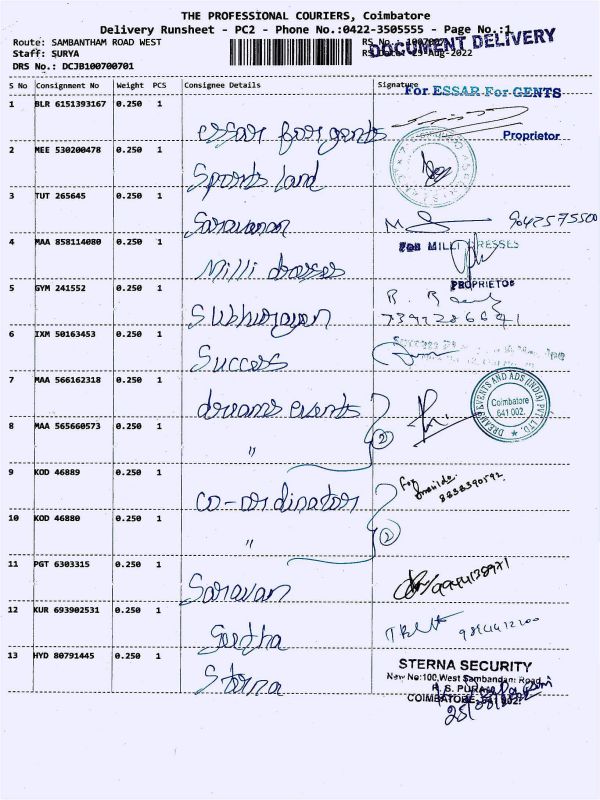 THE PROFESSIONAL COURIERS, Coimbatore
Delivery Runsheet - PC2 - Phone No.:0422-3505555 - Page No.:1
Route: SAMBANTHAM ROAD WEST
DOCUMENT DELIVERY
Staff: SURYA
DRS No.: DCJB100700701
S No Consignment No Weight PCS Consignee Details Signature
For ESSAR For GENTS
1 BLR 6151393167 0.250 1 essar for gents
Proprietor
2 MEE 530200478 0.250 1 Sports land
3 TUT 265645 0.250 1 Saravanan
4 MAA 858114080 0.250 1 Milli dresses
FOR MILLI DRESSES
PROPRIETOR
5 GYM 241552 0.250 1 Subhurayan
6 IXM 50163453 0.250 1 Success
7 MAA 566162318 0.250 1 dreams events
2
DREAMS EVENTS AND ADS (INDIA) PVT. LTD.
Coimbatore
641 002.
8 MAA 565660573 0.250 1 "
9 KOD 46889 0.250 1 co-ordinator
2
For
8838390592
10 KOD 46880 0.250 1 "
11 PGT 6303315 0.250 1 Saravan
12 KUR 693902531 0.250 1 Geetha
13 HYD 80791445 0.250 1 Sterna
STERNA SECURITY
New No:100, West Sambandam Road
R.S. PURAM
COIMBATORE-641 002.